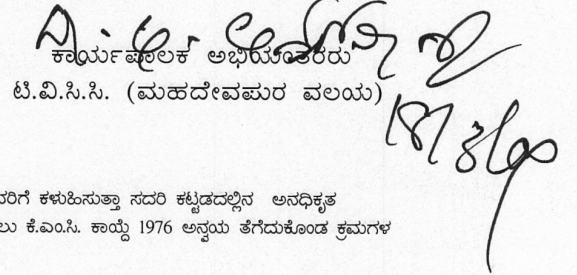 ಕಾರ್ಯಪಾಲಕ ಅಭಿಯಂತರರು
ಟಿ.ವಿ.ಸಿ.ಸಿ. (ಮಹದೇವಪುರ ವಲಯ)
ನರಿಗೆ ಕಳುಹಿಸುತ್ತಾ ಸದರಿ ಕಟ್ಟಡದಲ್ಲಿನ ಅನಧಿಕೃತ
ಲು ಕೆ.ಎಂ.ಸಿ. ಕಾಯ್ದೆ 1976 ಅನ್ವಯ ತೆಗೆದುಕೊಂಡ ಕ್ರಮಗಳ